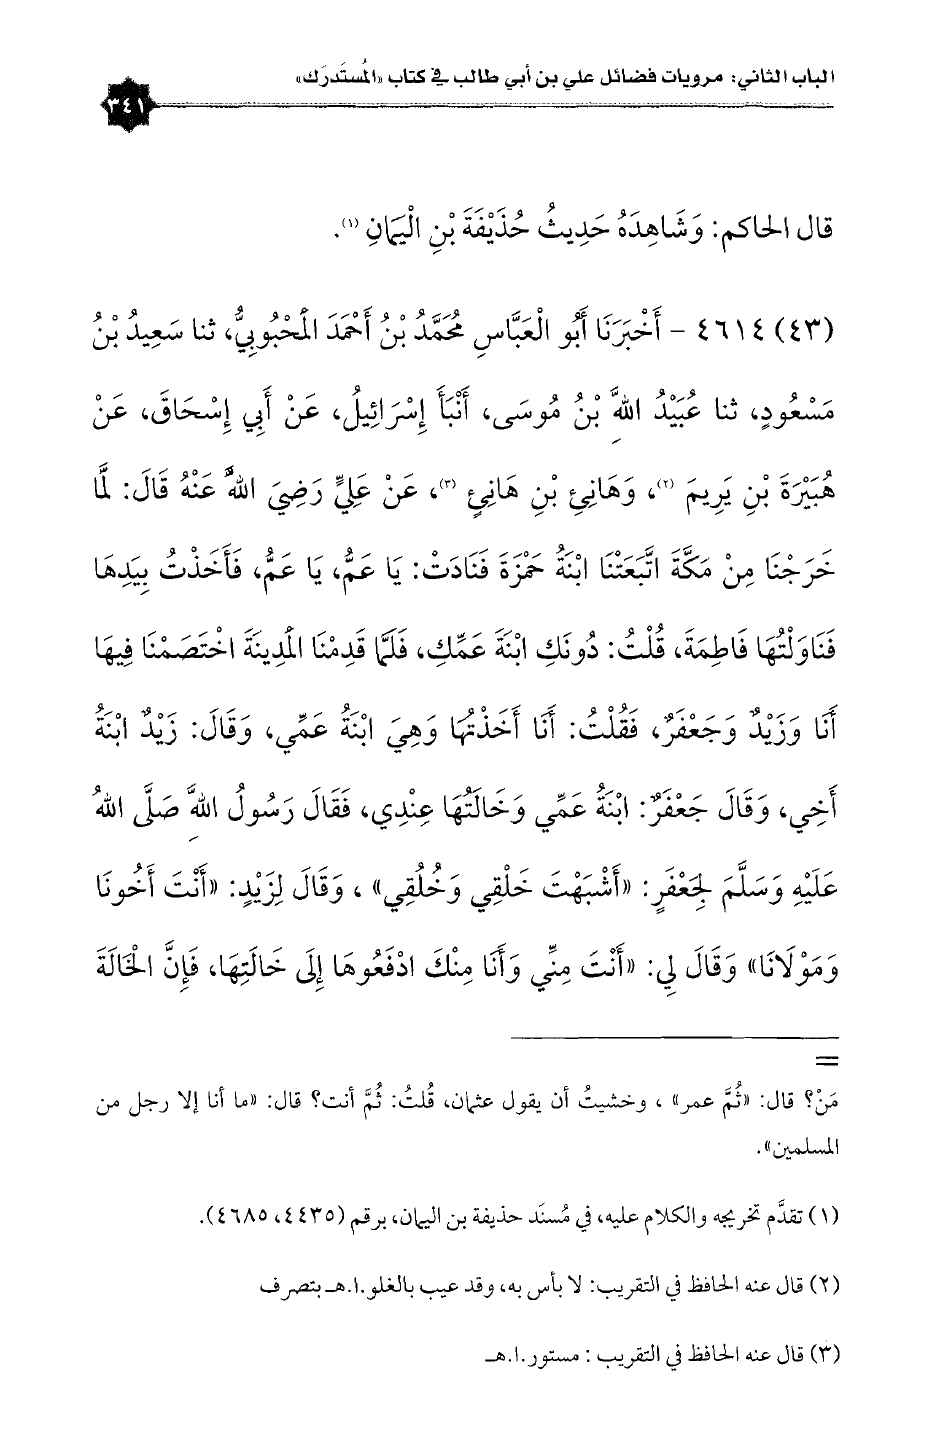 الباب الثاني: مرويات فضائل علي بن أبي طالب في كتاب «المُستَدرَك»
٣٤١
قال الحاكم: وَشَاهِدَهُ حَدِيثُ حُذَيْفَةَ بْنِ الْيَمَانِ (١).
(٤٣) ٤٦١٤ - أَخْبَرَنَا أَبُو الْعَبَّاسِ مُحَمَّدُ بْنُ أَحْمَدَ الْمَحْبُوبِيُّ، ثنا سَعِيدُ بْنُ
مَسْعُودٍ، ثنا عُبَيْدُ اللهِ بْنُ مُوسَى، أَنْبَأَ إِسْرَائِيلُ، عَنْ أَبِي إِسْحَاقَ، عَنْ
هُبَيْرَةَ بْنِ يَرِيمَ (٢)، وَهَانِئِ بْنِ هَانِئٍ (٣)، عَنْ عَلِيٍّ رَضِيَ اللهُ عَنْهُ قَالَ: لَمَّا
خَرَجْنَا مِنْ مَكَّةَ اتَّبَعَتْنَا ابْنَةُ حَمْزَةَ فَنَادَتْ: يَا عَمُّ، يَا عَمُّ، فَأَخَذْتُ بِيَدِهَا
فَنَاوَلْتُهَا فَاطِمَةَ، قُلْتُ: دُونَكِ ابْنَةَ عَمِّكِ، فَلَمَّا قَدِمْنَا الْمَدِينَةَ اخْتَصَمْنَا فِيهَا
أَنَا وَزَيْدٌ وَجَعْفَرٌ، فَقُلْتُ: أَنَا أَخَذْتُهَا وَهِيَ ابْنَةُ عَمِّي، وَقَالَ: زَيْدٌ ابْنَةُ
أَخِي، وَقَالَ جَعْفَرٌ: ابْنَةُ عَمِّي وَخَالَتُهَا عِنْدِي، فَقَالَ رَسُولُ اللهِ صَلَّى اللهُ
عَلَيْهِ وَسَلَّمَ لِجَعْفَرٍ: «أَشْبَهْتَ خَلْقِي وَخُلُقِي» ، وَقَالَ لِزَيْدٍ: «أَنْتَ أَخُونَا
وَمَوْلَانَا» وَقَالَ لِي: «أَنْتَ مِنِّي وَأَنَا مِنْكَ ادْفَعُوهَا إِلَى خَالَتِهَا، فَإِنَّ الْخَالَةَ
=
مَنْ؟ قال: «ثُمَّ عمر» ، وخشيتُ أن يقول عثمان، قُلتُ: ثُمَّ أنت؟ قال: «ما أنا إلا رجل من
المسلمين».
(١) تقدَّم تخريجه والكلام عليه، في مُسنَد حذيفة بن اليمان، برقم (٤٤٣٥، ٤٦٨٥).
(٢) قال عنه الحافظ في التقريب: لا بأس به، وقد عيب بالغلو.ا.هـ بتصرف
(٣) قال عنه الحافظ في التقريب : مستور.ا.هـ